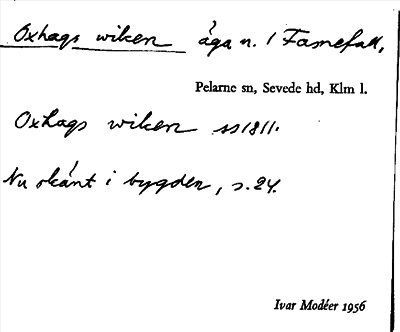 Oxhags wiken åga n. i Famefall,
Pelarne sn, Sevede hd, Klm l.
Oxhags wiken ss 1811.
Nu okänt i bygden, s. 24.
Ivar Modéer 1956